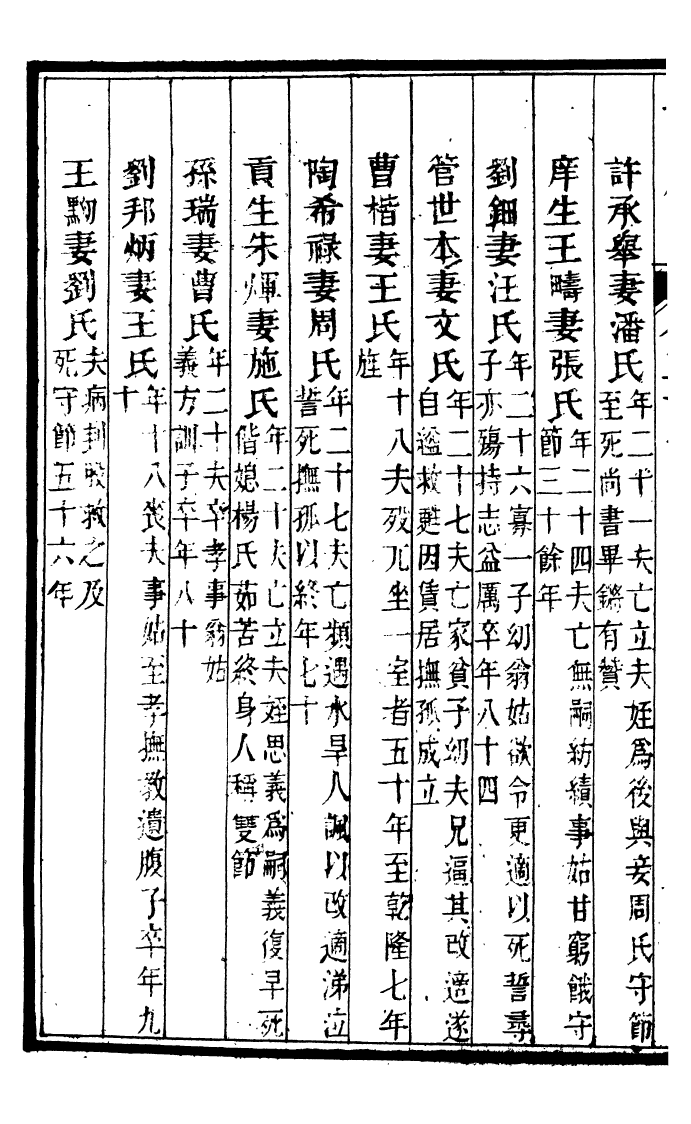 許承舉妻潘氏年二十一夫亡立夫姪爲後與妾周氏守節至死尚書畢鏘有贊
庠生王疇妻張氏年二十四夫亡無嗣紡績事姑甘窮餓守節三十餘年
劉鈿妻汪氏年二十六寡一子幼翁姑欲令更適以死誓尋子亦殤持志益厲卒年八十四
管世本妻文氏年二十七夫亡家貧子幼夫兄逼其改適遂自縊救甦因賃居撫孤成立
曹楷妻王氏年十八夫歿兀坐一室者五十年至乾隆七年旌
陶希祿妻周氏年二十七夫亡頻遇水旱人諷以改適涕泣誓死撫孤以終年七十
貢生朱煇妻施氏年二十夫亡立夫姪思義爲嗣義復早死偕媳楊氏茹苦終身人稱雙節
孫瑞妻曹氏年二十夫卒孝事翁姑義方訓子卒年八十
劉邦炳妻王氏年十八喪夫事姑至孝撫教遺腹子卒年九十
王駒妻劉氏夫病刲股救之及死守節五十六年